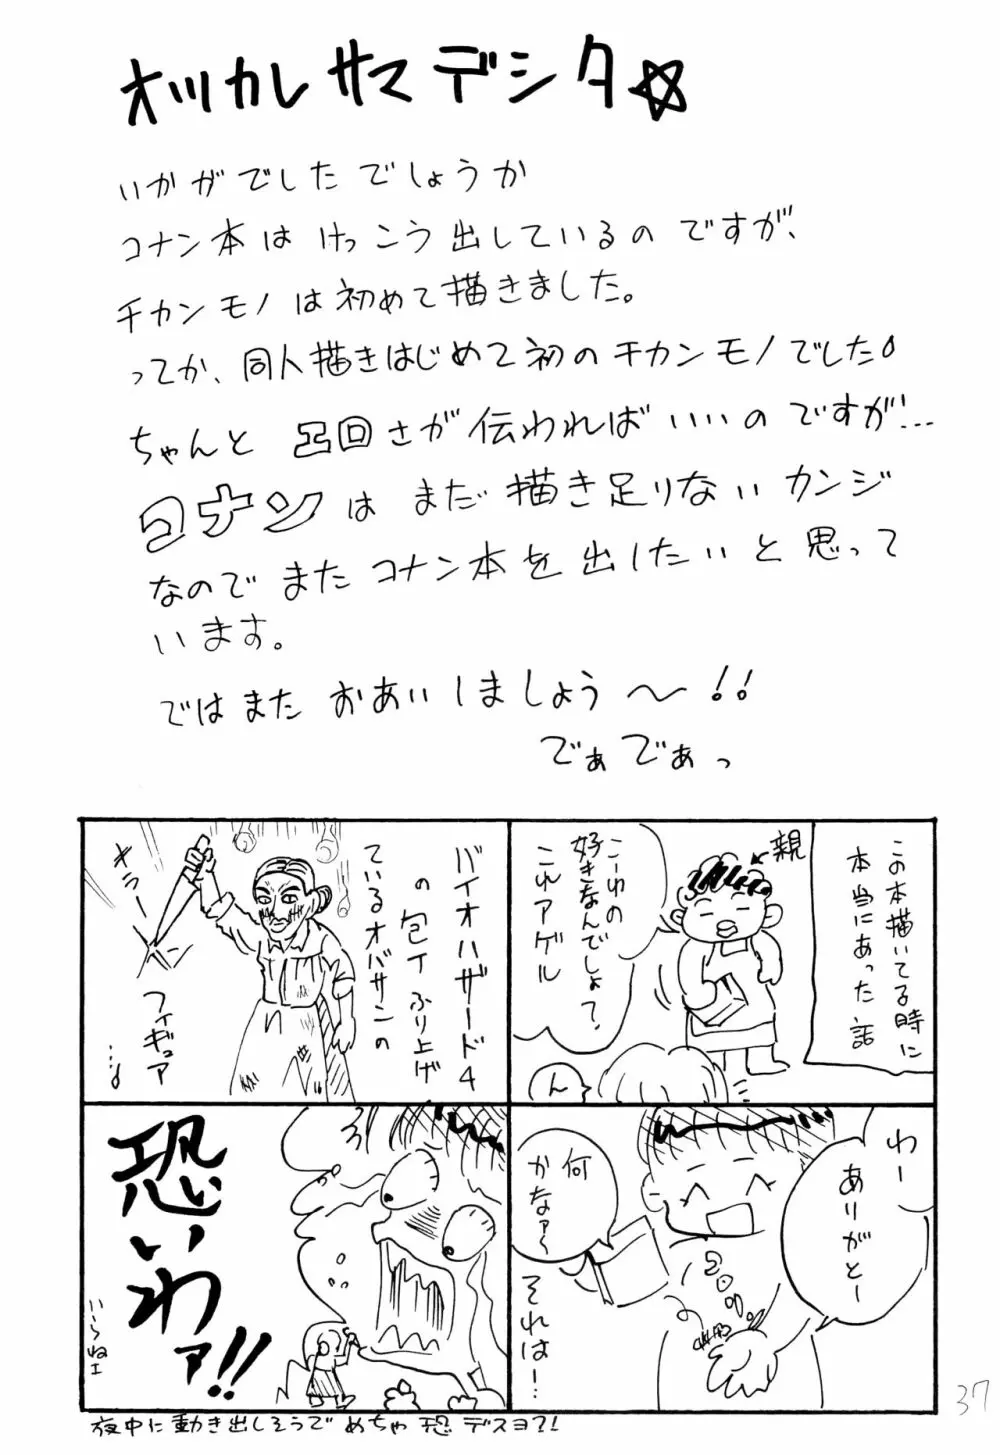 オツカレサマデシタ☆
いかがでしたでしょうか
コナン本はけっこう出しているのですが、
チカンモノは初めて描きました。
ってか、同人描きはじめて初のチカンモノでした
ちゃんと凸凹さが伝わればいいのですが…
コナンはまだ描き足りないカンジ
なのでまたコナン本を出したいと思って
います。
ではまたおあいしましょう〜!!
でぁでぁっ
この本描いてる時に
本当にあった話
親
こーゆの
好きなんでしょ?
これアゲル
ん
バイオハザード4
の包丁ふり上げ
ているオバサンの
フィギュア
…
キラーン
わー
ありがとー
何
かなァ〜
それは!…
恐いわァ!!
いらねェ
夜中に動き出しそうでめちゃ恐デスヨ?!
37